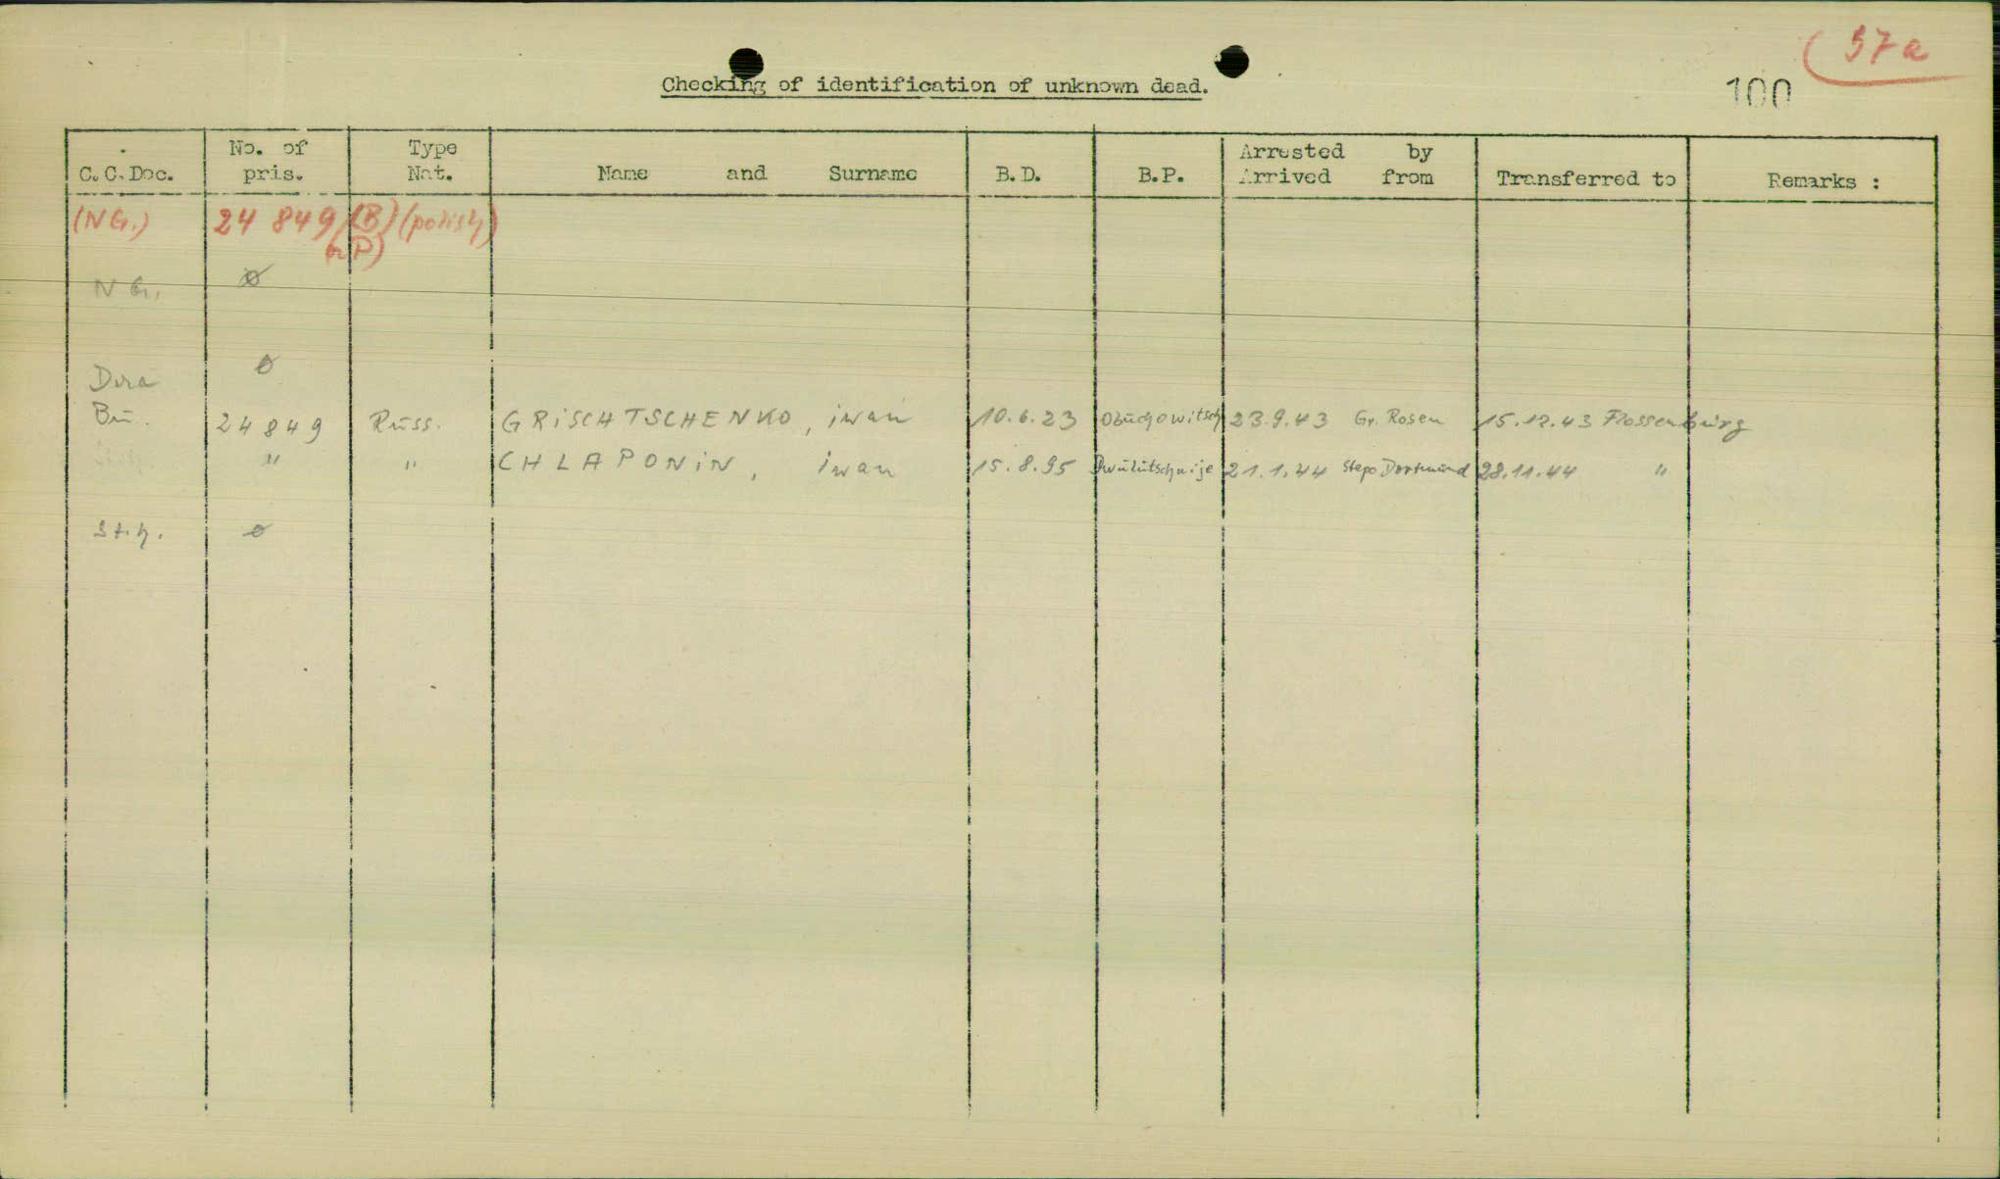 57a
100
Checking of identification of unknown dead.
C.C.Doc. No. of pris. Type Nat. Name and Surname B.D. B.P. Arrested by Arrived from Transferred to Remarks :
(NG.) 24 849 (B) (polish)
or P)
N G. ø
Dora ø
Bu. 24849 Russ. GRiSCHTSCHENKO, iwan 10.6.23 Obuchowitsch 23.9.43 Gr. Rosen 15.12.43 Flossenbürg
" " CHLAPONiN, iwan 15.8.95 Dwulutschnije 21.1.44 Stapo Dortmund 28.11.44 "
Sth. ø